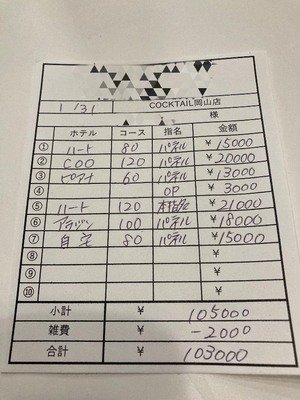 COCKTAIL岡山店
1/31 様
ホテル コース 指名 金額
① ハート 80 パネル ¥15000
② COO 120 パネル ¥20000
③ ピアナ 60 パネル ¥13000
④ OP ¥3000
⑤ ハート 120 本指名 ¥21000
⑥ アラジン 100 パネル ¥18000
⑦ 自宅 80 パネル ¥15000
⑧ ¥
⑨ ¥
⑩ ¥
小計 ¥ 105000
雑費 ¥ -2000
合計 ¥ 103000